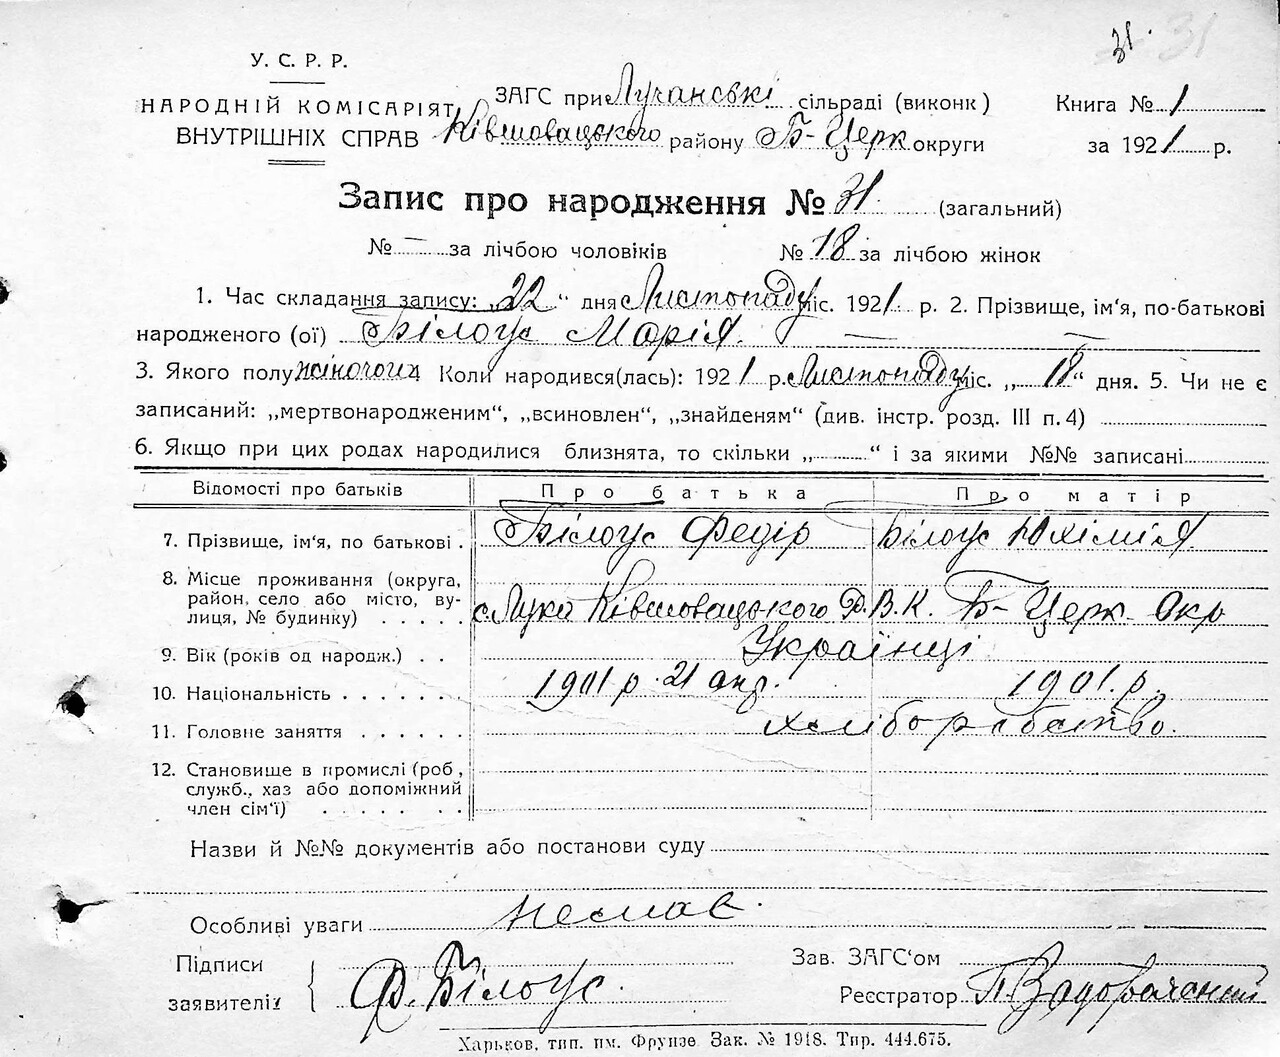 31. 31
У. С. Р. Р.
НАРОДНІЙ КОМІСАРІЯТ
ВНУТРІШНІХ СПРАВ
ЗАГС при Лучанські сільраді (виконк)
Ківшовацького району Б-Церк округи
Книга № 1
за 1921 р.
Запис про народження № 31. (загальний)
№ — за лічбою чоловіків № 18 за лічбою жінок
1. Час складання запису: „22“ дня Листопаду міс. 1921 р. 2. Прізвище, ім'я, по-батькові
народженого (ої) Білоус Марія. — —
3. Якого полу жіночого 4 Коли народився(лась): 1921 р. Листопаду міс. „18“ дня. 5. Чи не є
записаний: „мертвонародженим“, „всиновлен“, „знайденям“ (див. інстр. розд. III п. 4)
6. Якщо при цих родах народилися близнята, то скільки „ “ і за якими №№ записані
Відомості про батьків Про батька Про матір
7. Прізвище, ім'я, по батькові . Білоус Федір Білоус Юхімія.
8. Місце проживання (округа,
район, село або місто, ву-
лиця, № будинку) . . . . . с. Лука Ківшовацького Р.В.К. Б-Церк. Окр
9. Вік (років од народж.) . . Українці
10. Національність . . . . . . 1901 р. 21 апр. 1901. р.
11. Головне заняття . . . . . . хліборобство.
12. Становище в промислі (роб,
служб., хаз або допоміжний
член сім'ї) . . . . . . .
Назви й №№ документів або постанови суду
Особливі уваги немає.
Підписи
заявителів Ф. Білоус.
Зав. ЗАГС'ом
Реєстратор П.
Харьков, тип. им. Фрунзе Зак. № 1918. Тир. 444.675.